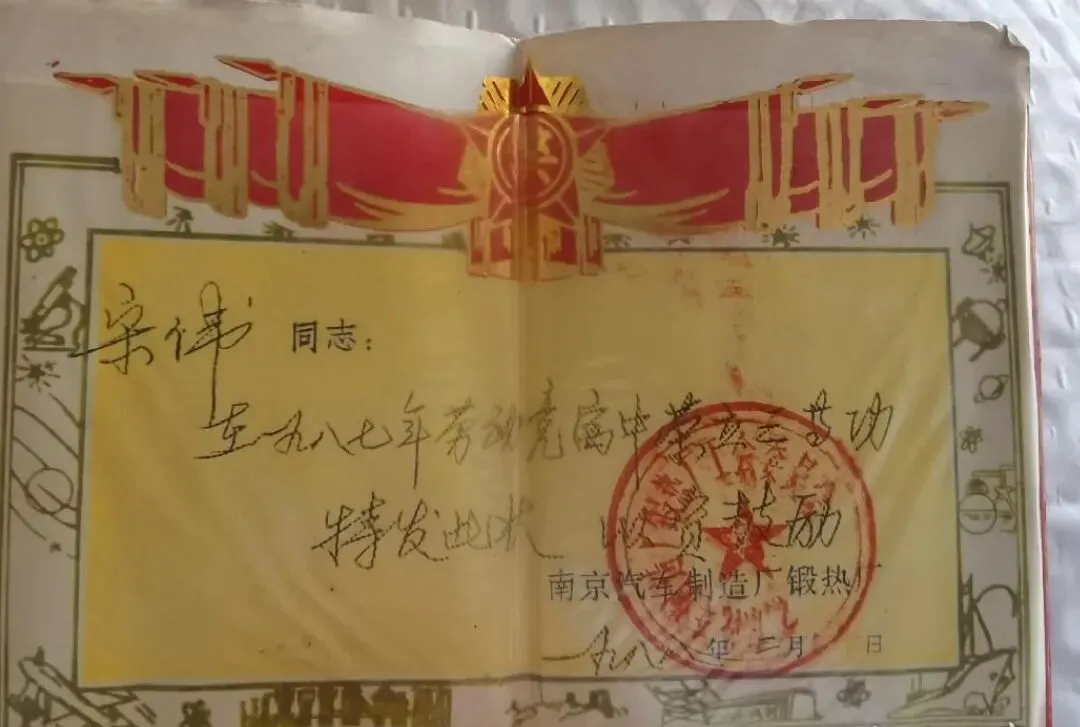 奖
宋伟 同志：
在一九八七年劳动竞赛中荣立三等功
特发此状 以资鼓励
南京汽车制造厂锻热厂
一九八八年三月 日